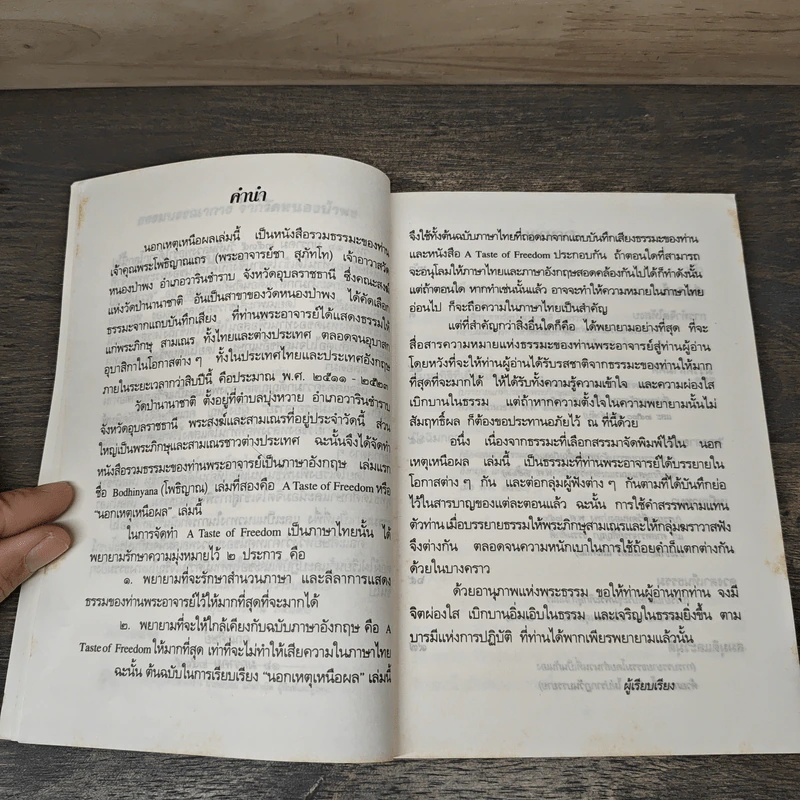 คำนำ
นอกเหตุเหนือผลเล่มนี้ เป็นหนังสือรวมธรรมะของท่าน
เจ้าคุณพระโพธิญาณเถร (พระอาจารย์ชา สุภัทโท) เจ้าอาวาสวัด
หนองป่าพง อำเภอวารินชำราบ จังหวัดอุบลราชธานี ซึ่งคณะสงฆ์
แห่งวัดป่านานาชาติ อันเป็นสาขาของวัดหนองป่าพง ได้คัดเลือก
ธรรมะจากแถบบันทึกเสียง ที่ท่านพระอาจารย์ได้แสดงธรรมให้
แก่พระภิกษุ สามเณร ทั้งไทยและต่างประเทศ ตลอดจนอุบาสก
อุบาสิกาในโอกาสต่าง ๆ ทั้งในประเทศไทยและประเทศอังกฤษ
ภายในระยะเวลากว่าสิบปีนี้ คือประมาณ พ.ศ. ๒๕๑๑ - ๒๕๒๓
วัดป่านานาชาติ ตั้งอยู่ที่ตำบลบุ่งหวาย อำเภอวารินชำราบ
จังหวัดอุบลราชธานี พระสงฆ์และสามเณรที่อยู่ประจำวัดนี้ ส่วน
ใหญ่เป็นพระภิกษุและสามเณรชาวต่างประเทศ ฉะนั้นจึงได้จัดทำ
หนังสือรวมธรรมะของท่านพระอาจารย์เป็นภาษาอังกฤษ เล่มแรก
ชื่อ Bodhinyana (โพธิญาณ) เล่มที่สองคือ A Taste of Freedom หรือ
“นอกเหตุเหนือผล” เล่มนี้
ในการจัดทำ A Taste of Freedom เป็นภาษาไทยนั้น ได้
พยายามรักษาความมุ่งหมายไว้ ๒ ประการ คือ
๑. พยายามที่จะรักษาสำนวนภาษา และลีลาการแสดง
ธรรมของท่านพระอาจารย์ไว้ให้มากที่สุดที่จะมากได้
๒. พยายามที่จะให้ใกล้เคียงกับฉบับภาษาอังกฤษ คือ A
Taste of Freedom ให้มากที่สุด เท่าที่จะไม่ทำให้เสียความในภาษาไทย
ฉะนั้น ต้นฉบับในการเรียบเรียง “นอกเหตุเหนือผล” เล่มนี้
จึงใช้ทั้งต้นฉบับภาษาไทยที่ถอดมาจากแถบบันทึกเสียงธรรมะของท่าน
และหนังสือ A Taste of Freedom ประกอบกัน ถ้าตอนใดที่สามารถ
จะอนุโลมให้ภาษาไทยและภาษาอังกฤษสอดคล้องกันไปได้ก็ทำดังนั้น
แต่ถ้าตอนใด หากทำเช่นนั้นแล้ว อาจจะทำให้ความหมายในภาษาไทย
อ่อนไป ก็จะถือความในภาษาไทยเป็นสำคัญ
แต่ที่สำคัญกว่าสิ่งอื่นใดก็คือ ได้พยายามอย่างที่สุด ที่จะ
สื่อสารความหมายแห่งธรรมะของท่านพระอาจารย์สู่ท่านผู้อ่าน
โดยหวังที่จะให้ท่านผู้อ่านได้รับรสชาติจากธรรมะของท่านให้มาก
ที่สุดที่จะมากได้ ให้ได้รับทั้งความรู้ความเข้าใจ และความผ่องใส
เบิกบานในธรรม แต่ถ้าหากความตั้งใจในความพยายามนั้นไม่
สัมฤทธิ์ผล ก็ต้องขอประทานอภัยไว้ ณ ที่นี้ด้วย
อนึ่ง เนื่องจากธรรมะที่เลือกสรรมาจัดพิมพ์ไว้ใน นอก
เหตุเหนือผล เล่มนี้ เป็นธรรมะที่ท่านพระอาจารย์ได้บรรยายใน
โอกาสต่าง ๆ กัน และต่อกลุ่มผู้ฟังต่าง ๆ กันตามที่ได้บันทึกย่อ
ไว้ในสารบาญของแต่ละตอนแล้ว ฉะนั้น การใช้คำสรรพนามแทน
ตัวท่าน เมื่อบรรยายธรรมให้พระภิกษุสามเณรและให้กลุ่มฆราวาสฟัง
จึงต่างกัน ตลอดจนความหนักเบาในการใช้ถ้อยคำก็แตกต่างกัน
ด้วยในบางคราว
ด้วยอานุภาพแห่งพระธรรม ขอให้ท่านผู้อ่านทุกท่าน จงมี
จิตผ่องใส เบิกบานอิ่มเอิบในธรรม และเจริญในธรรมยิ่งขึ้น ตาม
บารมีแห่งการปฏิบัติ ที่ท่านได้พากเพียรพยายามแล้วนั้น
ผู้เรียบเรียง